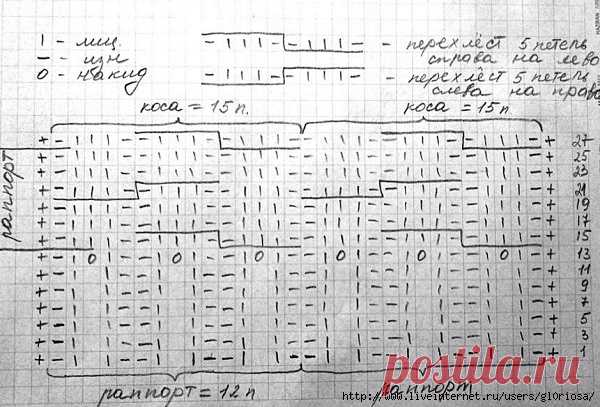 I - лиц.
— - изн
О - накид
- перехлёст 5 петель
справа на лево
- перехлёст 5 петель
слева на право
коса = 15 п.
коса = 15 п.
раппорт
27
25
23
21
19
17
15
13
О О О О О О
11
9
7
5
3
1
раппорт = 12 п
раппорт
postila.ru
http://www.liveinternet.ru/users/gloriosa/